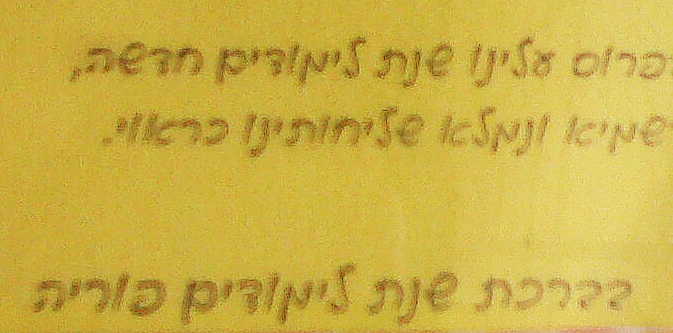 פרוס עלינו שנת לימודים חדשה,
שמיא ונמלא שליחותינו כראוי.
בברכת שנת לימודים פוריה